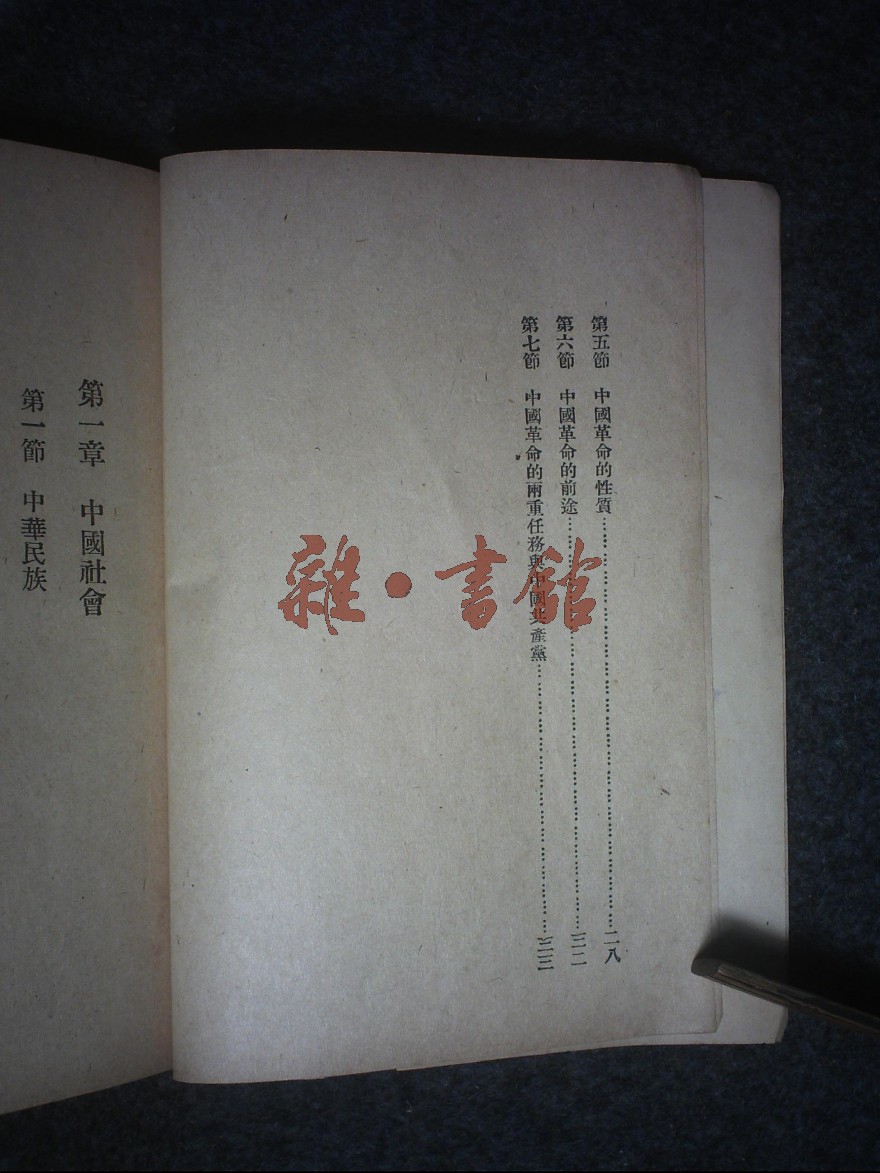 第五節　中國革命的性質……二八
第六節　中國革命的前途……三二
第七節　中國革命的兩重任務與中國共產黨……三三
第一章　中國社會
第一節　中華民族
雜·書館